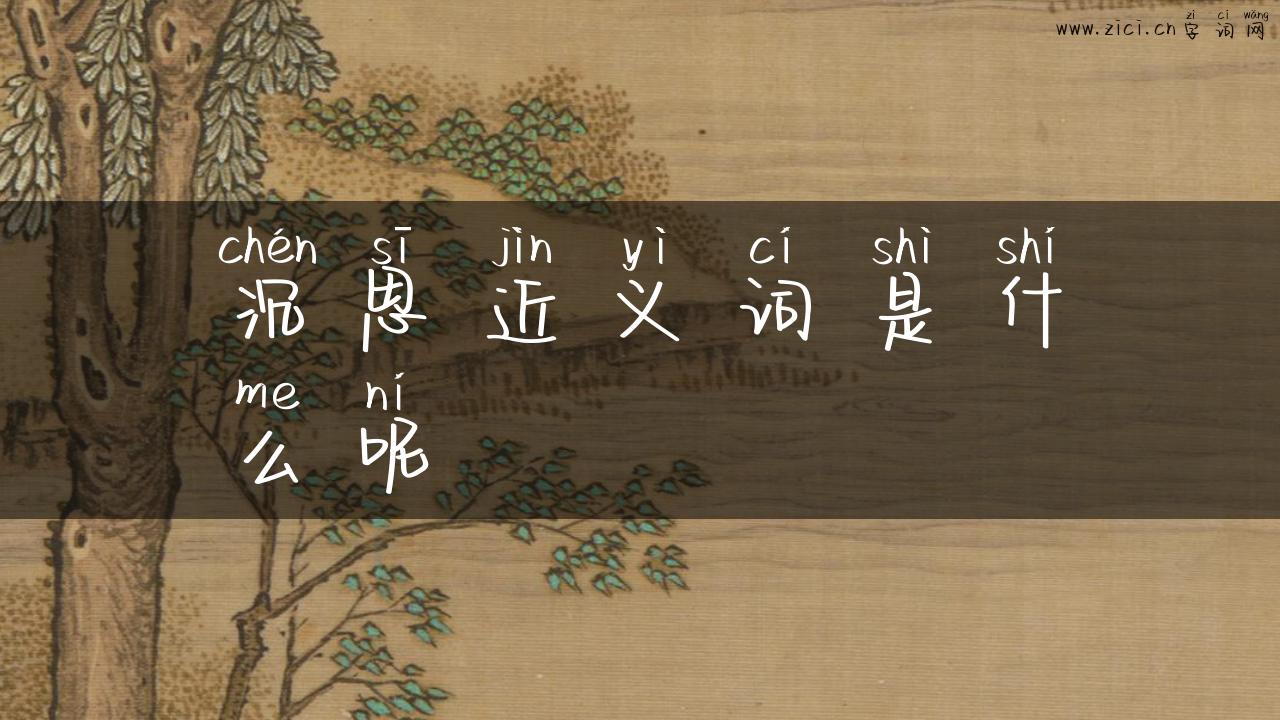 zì cí wǎng
www.zici.cn 字词网
chén sī jìn yì cí shì shí
沉思近义词是什
me ní
么呢